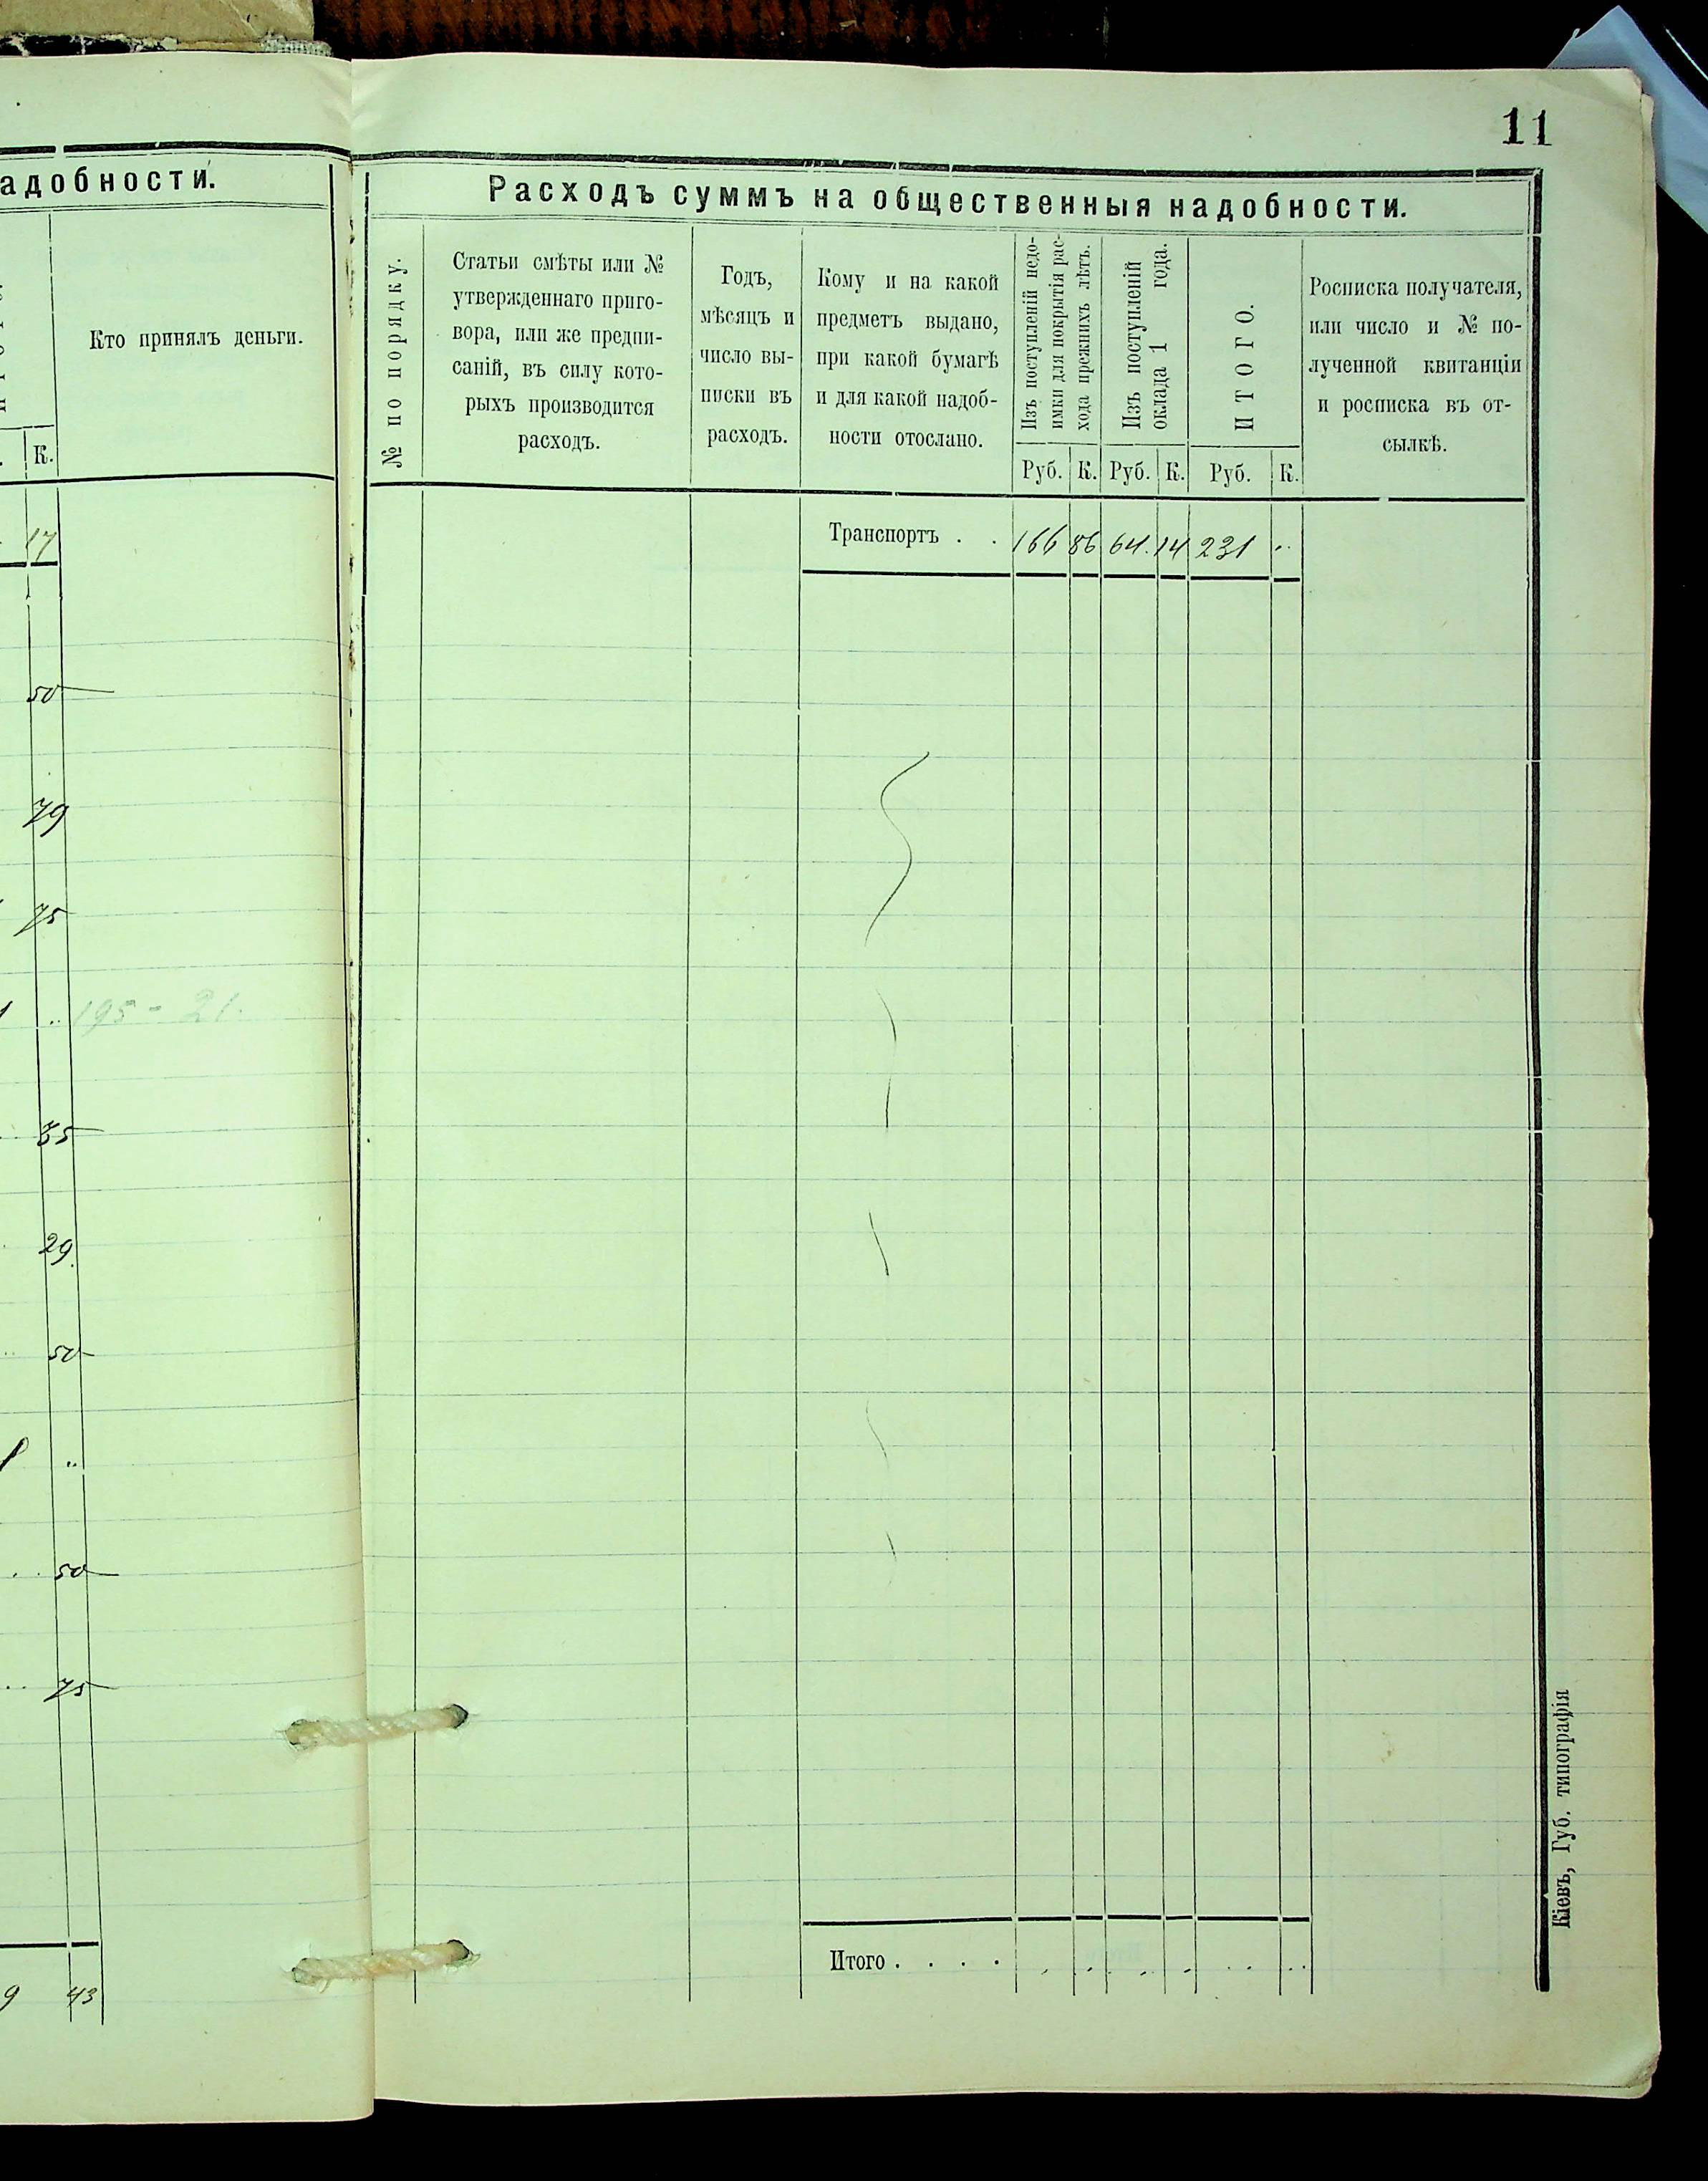 11
адобности.
К.
Кто принялъ деньги.
17
50
79
75
195 - 21.
35
29
50
50
75
9 43
Расходъ суммъ на общественныя надобности.
№ по порядку.
Статьи смѣты или №
утвержденнаго приго-
вора, или же предпи-
саній, въ силу кото-
рыхъ производится
расходъ.
Годъ,
мѣсяцъ и
число вы-
писки въ
расходъ.
Кому и на какой
предметъ выдано,
при какой бумагѣ
и для какой надоб-
ности отослано.
Изъ поступленій недо-
имки для покрытія рас-
хода прежнихъ лѣтъ.
Изъ поступленій
оклада 1 года.
ИТОГО.
Росписка получателя,
или число и № по-
лученной квитанціи
и росписка въ от-
сылкѣ.
Руб. К. Руб. К. Руб. К.
Транспортъ . . 166 86 64. 14 231 ..
Итого . . . .
Кіевъ, Губ. типографія